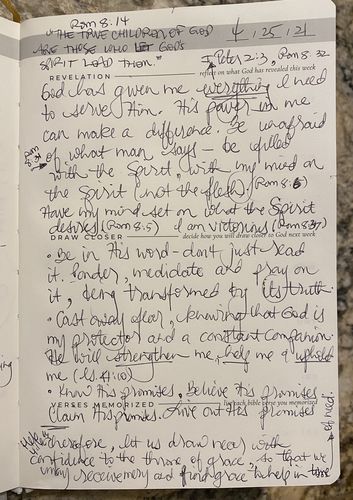 Rom 8:14
"THE TRUE CHILDREN OF GOD
ARE THOSE WHO LET GOD'S
SPIRIT LEAD THEM."
4, 25, 21
I Peter 2:3, Rom 8:32
REVELATION
reflect on what God has revealed this week
God has given me everything I need
to serve Him. His power in me
can make a difference. Be unafraid
of what man says - be filled
with the Spirit, with my mind on
the Spirit (not the flesh). (Rom 8:6)
Have my mind set on what the Spirit
desires (Rom 8:5) I am victorious (Rom 8:37)
DRAW CLOSER
decide how you will draw closer to God next week
• Be in His word - don't just read
it. Ponder, medidate and pray on
it, being transformed by its truth.
• Cast away fear, knowing that God is
my protector and a constant companion.
He will strengthen me, help me & uphold
me (Is. 41:10)
• Know His promises, Believe His promises
VERSES MEMORIZED
bible verse you memorized
Claim His promises. Live out His promises
Therefore, let us draw near with
confidence to the throne of grace, so that we
may receive mercy and find grace to help in time
of need.